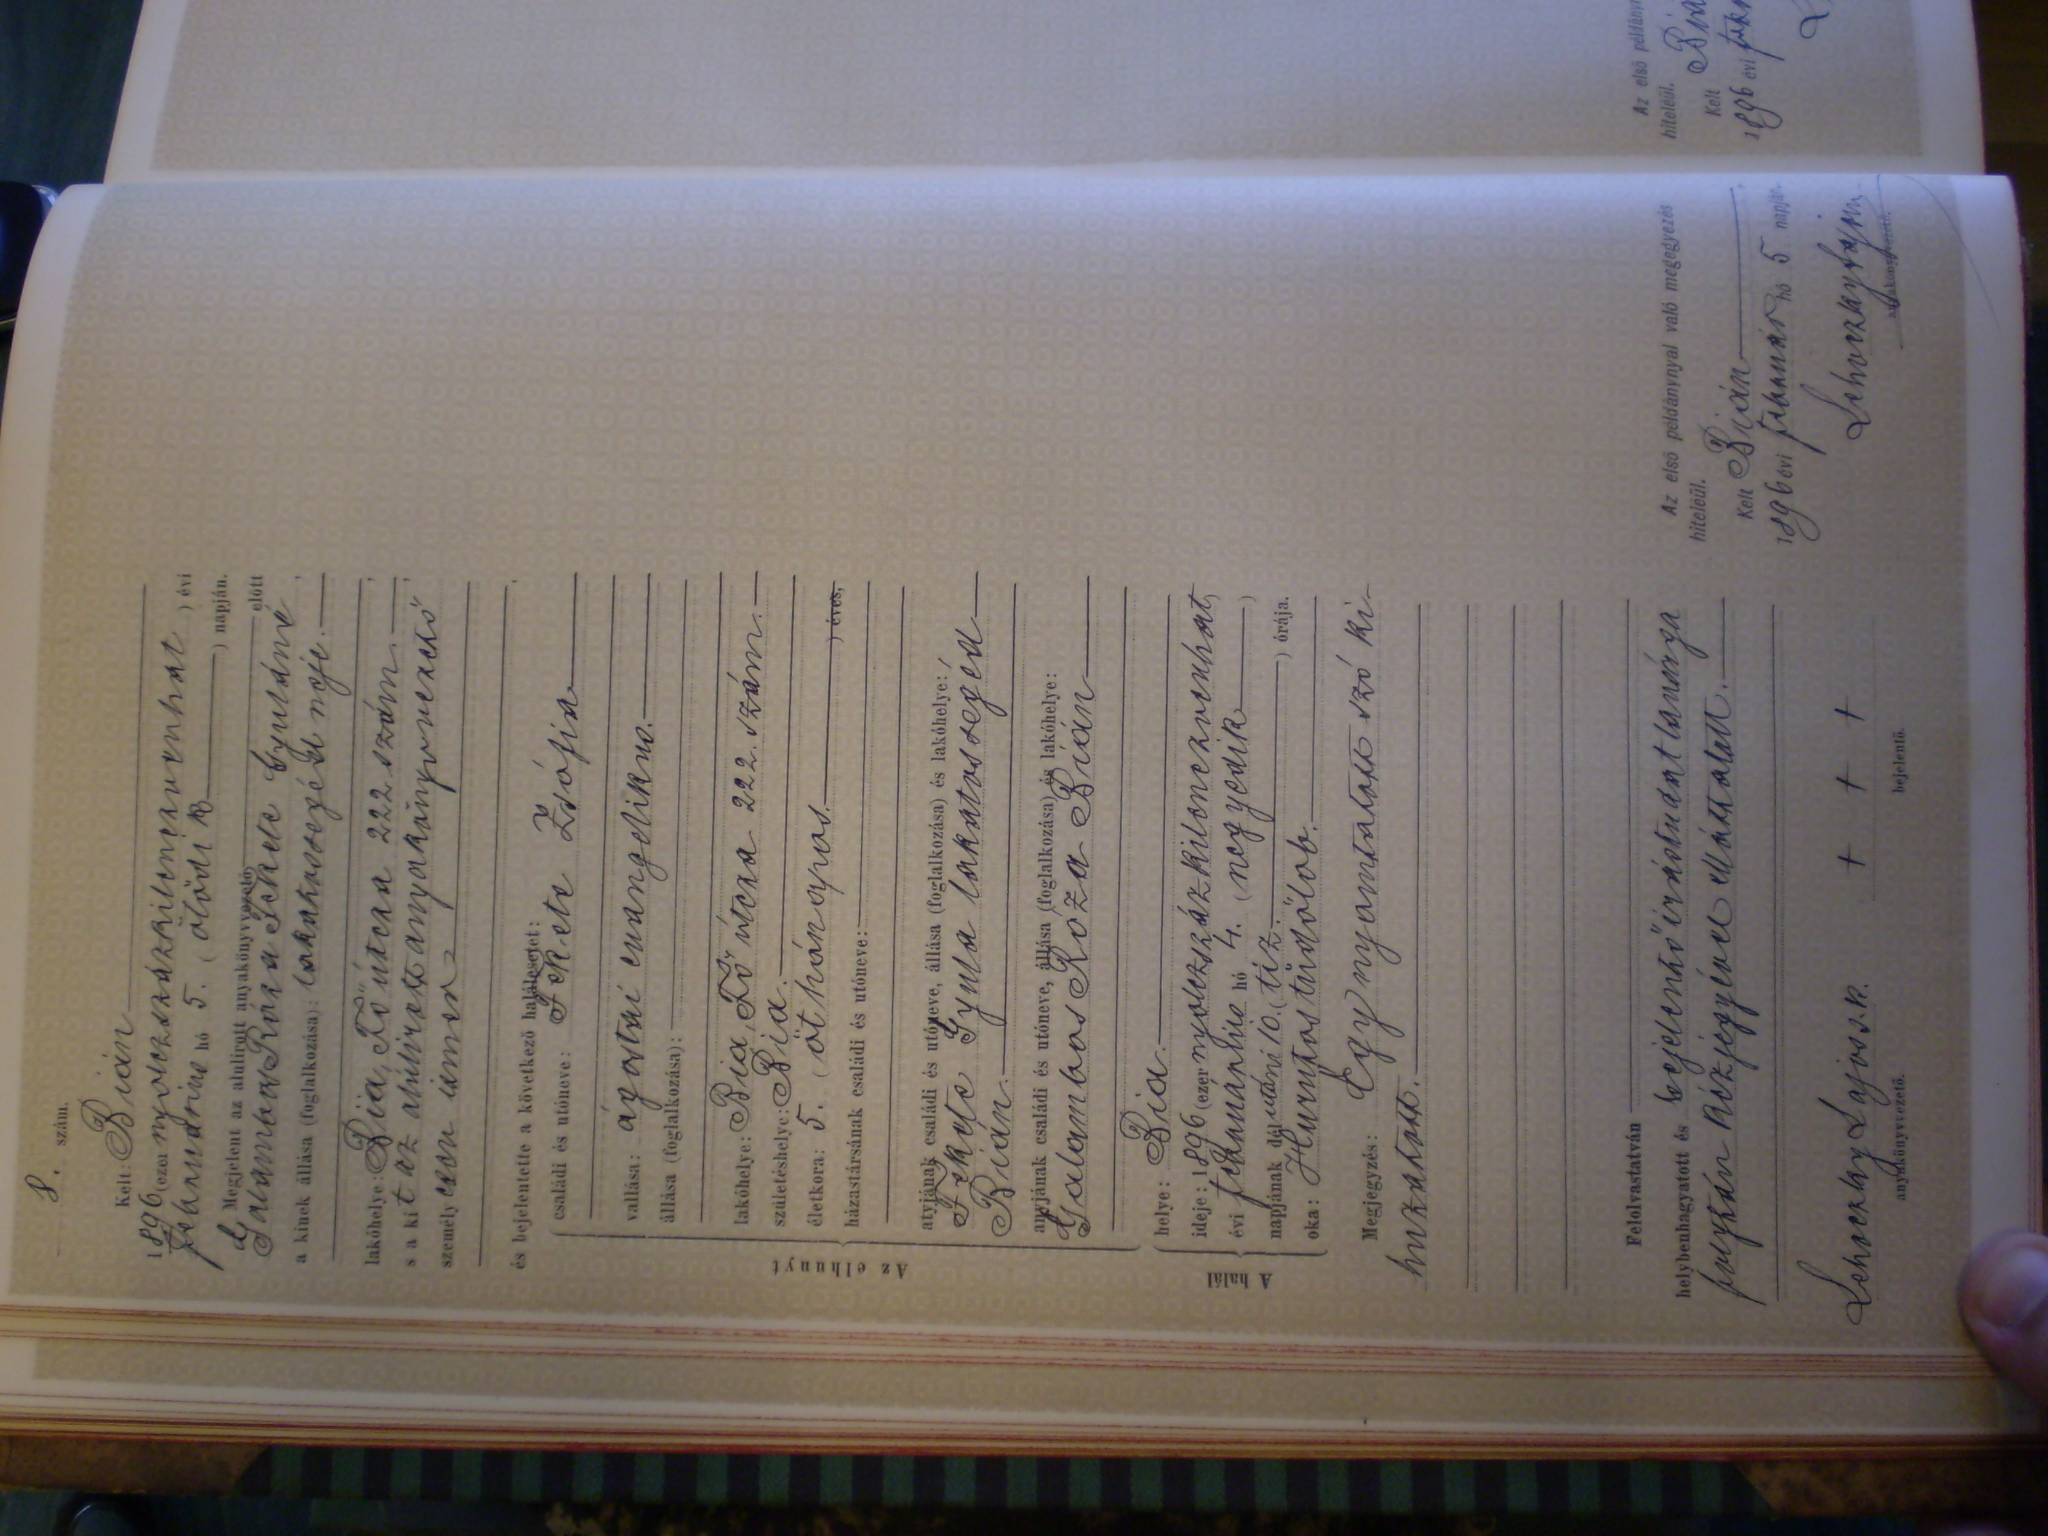 8. szám.
Kelt: Bián
1896 (ezer nyolczszázkilenczvenhat) évi
február hó 5. (ötödik) napján.
Megjelent az alulirott anyakönyvvezető előtt
Galambos Róza Fekete Gyuláné
a kinek állása (foglalkozása): lakatossegéd neje.
lakóhelye: Bia, Fő útcza 222. szám
s a kit az alulirott anyakönyvvezető
személyesen ismer
és bejelentette a következő halálesetet:
Az elhunyt
családi és utóneve: Fekete Zsófia
vallása: ágostai evangelikus.
állása (foglalkozása):
lakóhelye: Bia, Fő útcza 222. szám.
születéshelye: Bia.
életkora: 5. (öt hónapos.) éves,
házastársának családi és utóneve:
atyjának családi és utóneve, állása (foglalkozása) és lakóhelye:
Fekete Gyula lakatossegéd
Bián.
anyjának családi és utóneve, állása (foglalkozása) és lakóhelye:
Galambos Róza Bián
A halál
helye: Bia.
ideje: 1896 (ezer nyolczszázkilenczvenhat)
évi február hó 4. (negyedik)
napjának dél utáni 10. (tiz.) órája.
oka: Hurutos tüdőlob.
Megjegyzés: Egy nyomtatott szó ki-
huzatott.
Felolvastatván
helybenhagyatott és bejelentő irástudatlansága
folytán kézjegyével elláttatott.
Lehoczky Lajos s.k. + + +
anyakönyvvezető. bejelentő.
Az első példánynyal való megegyezés
hiteléül.
Kelt Bián
1896 évi február hó 5 napján.
Lehoczky Lajos
anyakönyvvezető.
Az első példány
hiteléül.
Kelt Biá
1896 évi